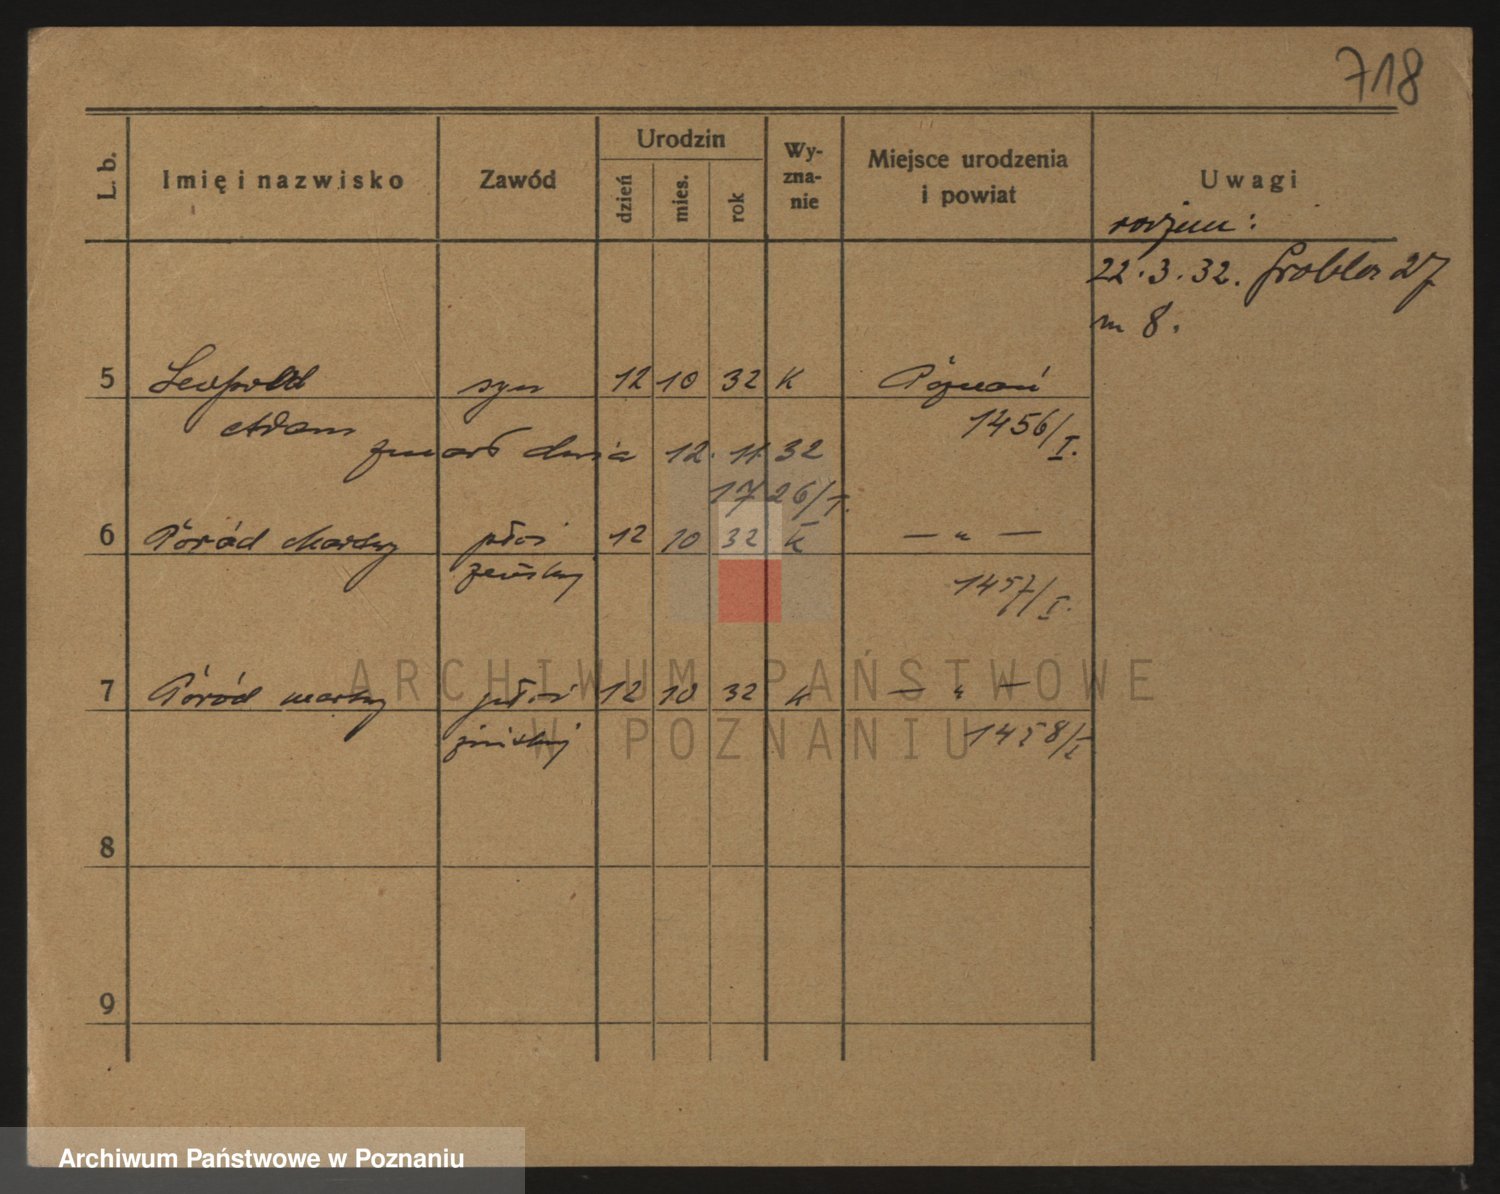 718
L. b.
Imię i nazwisko
Zawód
Urodzin
dzień
mies.
rok
Wy-
zna-
nie
Miejsce urodzenia
i powiat
Uwagi
22.3.32. Grobla 27
m 8.
5 Leopold syn 12 10 32 K Poznań
Adam 1456/I.
zmarł dnia 12. 11. 32
1726/I.
6 Poród martwy płci 12 10 32 K — " —
żeńskiej 1457/I.
7 Poród martwy płci 12 10 32 K — " —
żeńskiej 1458/I.
8
9
ARCHIWUM PAŃSTWOWE
W POZNANIU
Archiwum Państwowe w Poznaniu